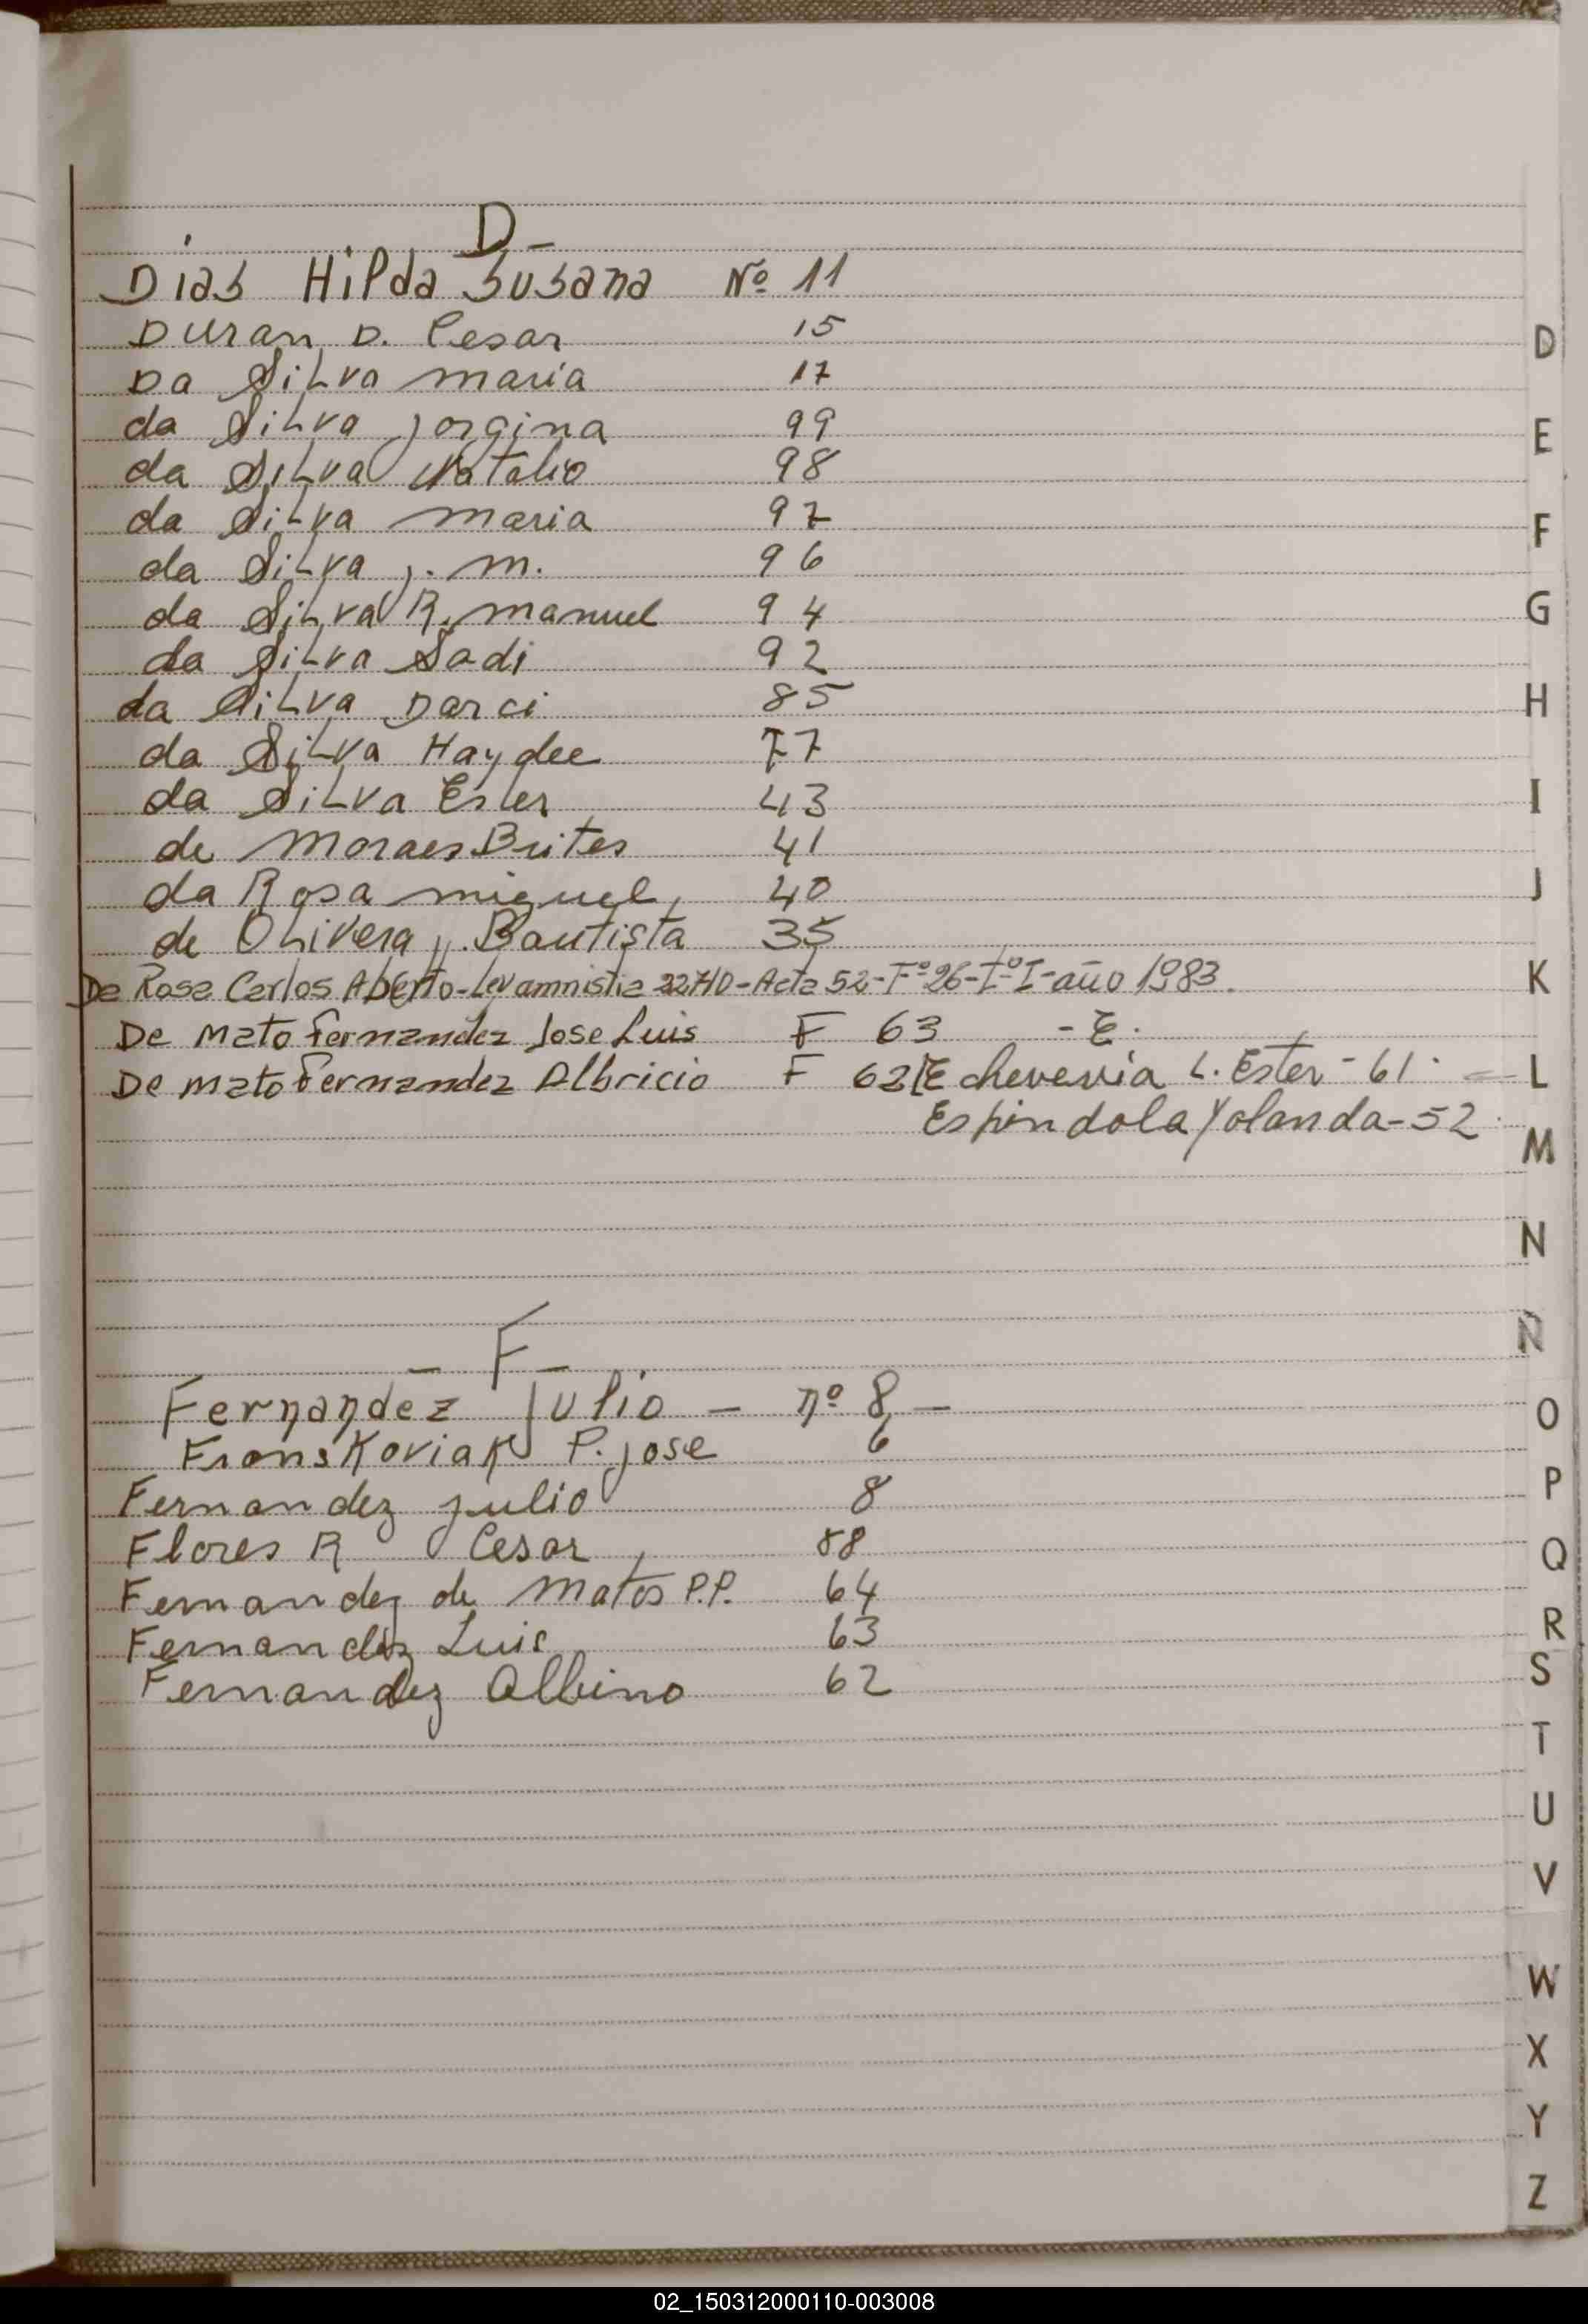 D-
Dias Hilda Susana Nº 11
Duran D. Cesar 15
Da Silva maria 17
da Silva jorgina 99
da Silva Natalio 98
da Silva maria 97
da Silva j. m. 96
da Silva R. manuel 94
da Silva Sadi 92
da Silva Darci 85
da Silva Haydee 77
da Silva Ester 43
de Moraes Brites 41
da Rosa miguel 40
de Olivera J. Bautista 35
De Rosa Carlos Aberto - Ley amnistia 22710 - Acta 52 - Fº 26 - Tº I - año 1983.
De Mato Fernandez Jose Luis F 63 - E.
De mato Fernandez Albricio F 62 Echeverria L. Ester - 61
Espindola Yolanda - 52
- F -
Fernandez Julio - nº 8 -
Franskoviak P. jose 6
Fernandez julio 8
Flores R Cesar 88
Fernandez de Matos P.P. 64
Fernandez Luis 63
Fernandez Albino 62
D
E
F
G
H
I
J
K
L
M
N
Ñ
O
P
Q
R
S
T
U
V
W
X
Y
Z
02_150312000110-003008